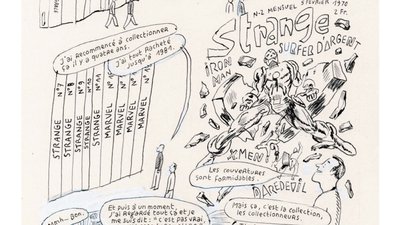 J'ai recommencé à collectionner
ça il y a quatre ans.
J'ai tout racheté
jusqu'à 1981.
STRANGE N°7
STRANGE N°8
STRANGE N°9
STRANGE N°10
STRANGE N°11
MARVEL
MARVEL
MARVEL N°
MARVEL N°
N°2 MENSUEL 5 FÉVRIER 1970
2 Fr.
Strange
SURFER D'ARGENT
IRON
MAN
X-MEN
DAREDEVIL
Les couvertures
sont formidables.
Mais ça, c'est la collection,
les collectionneurs.
Mmh... Bon.
Et puis à un moment,
j'ai regardé tout ça et je
me suis dit : "c'est pas vrai,